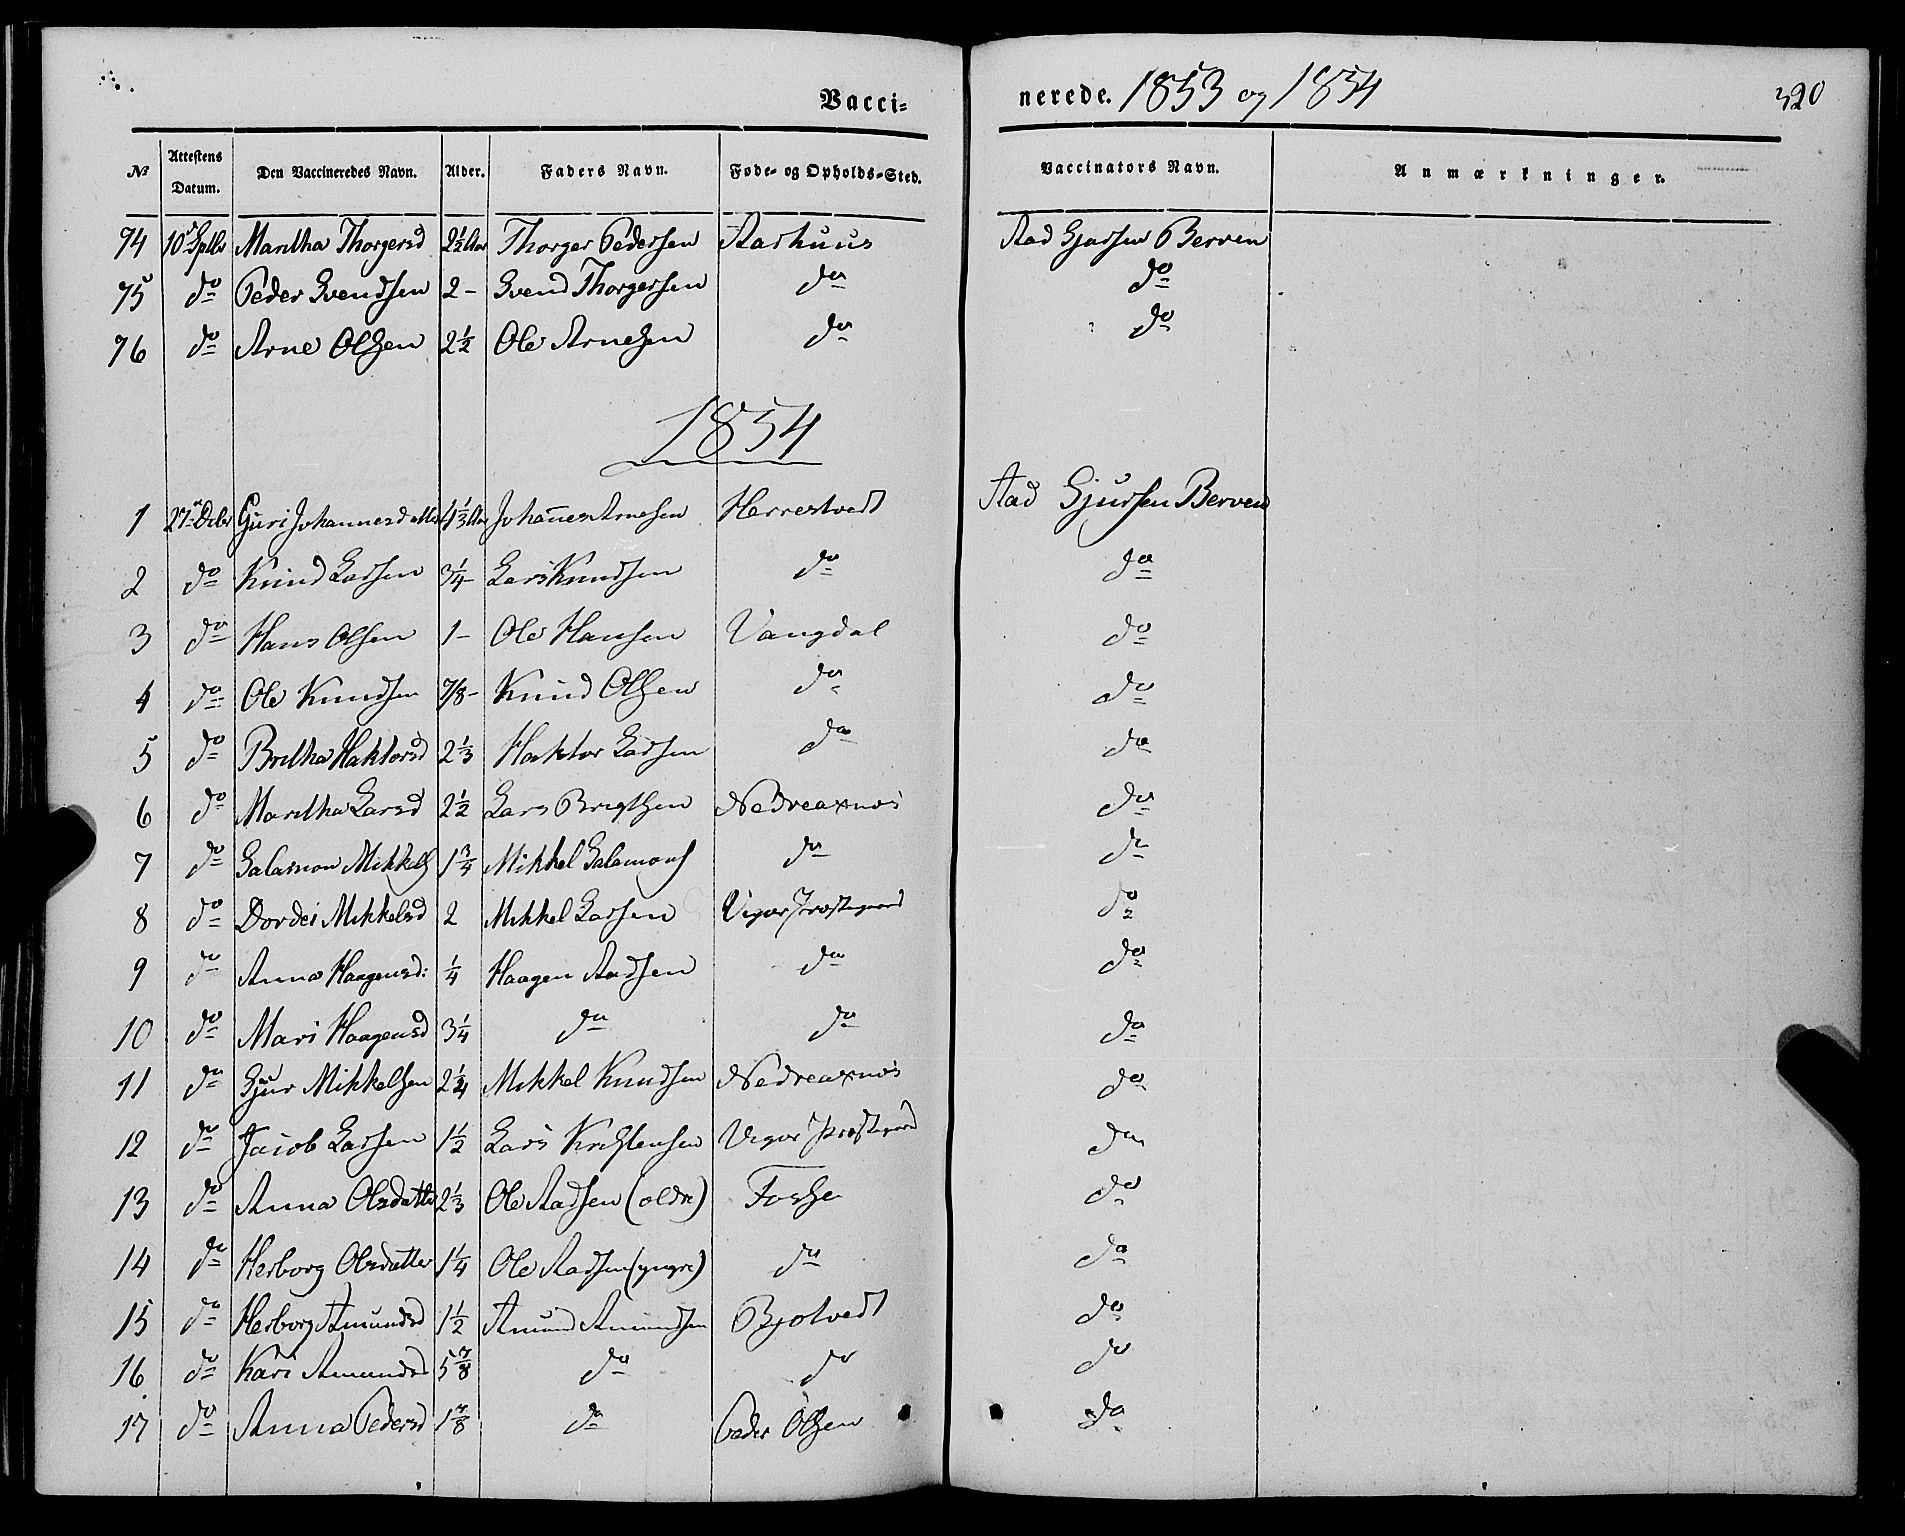 Vacci- nerede. 1853 og 1854 320
№ Attestens Datum. Den Vaccineredes Navn. Alder. Faders Navn. Føde- og Opholds-Sted. Vaccinators Navn. Anmærkninger.
74 10 Septbr Martha Thorgersd 2½ Aar Thorger Pedersen Aarhuus Aad Gjursen Berven
75 do Peder Svendsen 2 - Svend Thorgersen do do
76 do Arne Olsen 2½ Ole Arnesen do do
1854
1 27 Dcbr Guri Johannesdatter 1⅓ Aar Johannes Arnesen Herrestvedt Aad Gjursen Berven
2 do Knud Larsen 3¼ - Lars Knudsen do do
3 do Hans Olsen 1 - Ole Hansen Vangdal do
4 do Ole Knudsen 7/8 - Knud Olsen do do
5 do Britha Haktorsd 2⅓ Haktor Larsen do do
6 do Martha Larsd 2½ Lars Brigtsen Nedreaxnes do
7 do Salamon Mikkels 1¾ Mikkel Salamons do do
8 do Dordei Mikkelsd 2 Mikkel Larsen Vigør Præstegaard do
9 do Anna Haagensd: ¼ Haagen Aadsen do do
10 do Mari Haagensd 3¼ do do do
11 do Gjur Mikkelsen 2¼ Mikkel Knudsen Nedreaxnes do
12 do Jacob Larsen 1½ Lars Kristensen Vigør Præstegård do
13 do Anna Olsdatter 2⅓ Ole Aadsen (oldre) Fosse do
14 do Herborg Olsdatter 1¼ Ole Aadsen (yngre) do do
15 do Herborg Amundsd 1½ Amund Amundsen Bjotvedt do
16 do Kari Amundsd 5⅞ do do do
17 do Anna Pedersd 1⅞ do Peder Olsen do